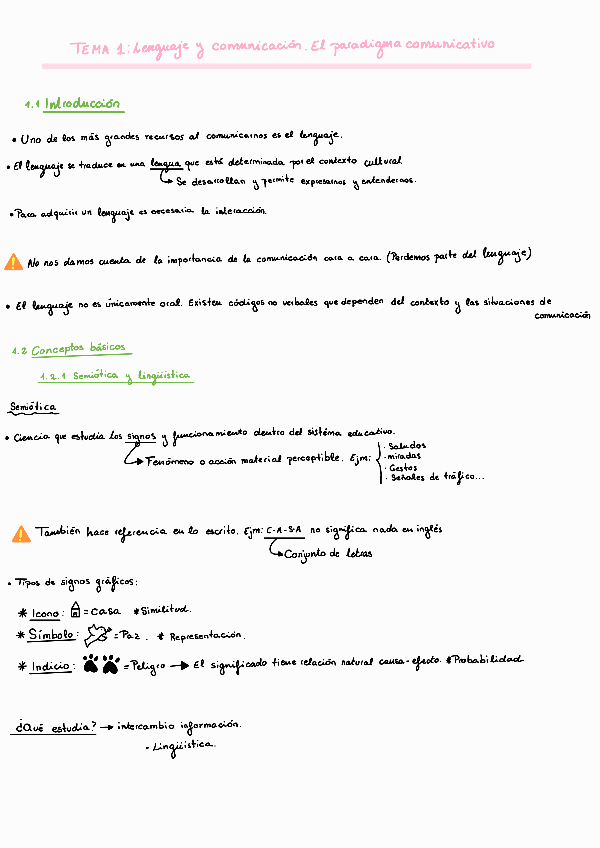 TEMA 1: Lenguaje y comunicación. El paradigma comunicativo
1.1 Introducción
• Uno de los más grandes recursos al comunicarnos es el lenguaje.
• El lenguaje se traduce en una lengua que está determinada por el contexto cultural
Se desarrollan y permite expresarnos y entendernos.
• Para adquirir un lenguaje es necesaria la interacción.
No nos damos cuenta de la importancia de la comunicación cara a cara. (Perdemos parte del lenguaje)
• El lenguaje no es únicamente oral. Existen códigos no verbales que dependen del contexto y las situaciones de
comunicación
1.2 Conceptos básicos
1.2.1 Semiótica y lingüística
Semiótica
• Ciencia que estudia los signos y funcionamiento dentro del sistema educativo.
Fenómeno o acción material perceptible. Ejm:
· Saludos
· miradas
· Gestos
· Señales de tráfico...
También hace referencia en lo escrito. Ejm: C-A-S-A no significa nada en inglés
Conjunto de letras
• Tipos de signos gráficos:
* Icono: = casa * Similitud.
* Símbolo: = Paz. * Representación.
* Indicio: = Peligro → El significado tiene relación natural causa-efecto. * Probabilidad
¿Qué estudia? → intercambio información.
- Lingüística.